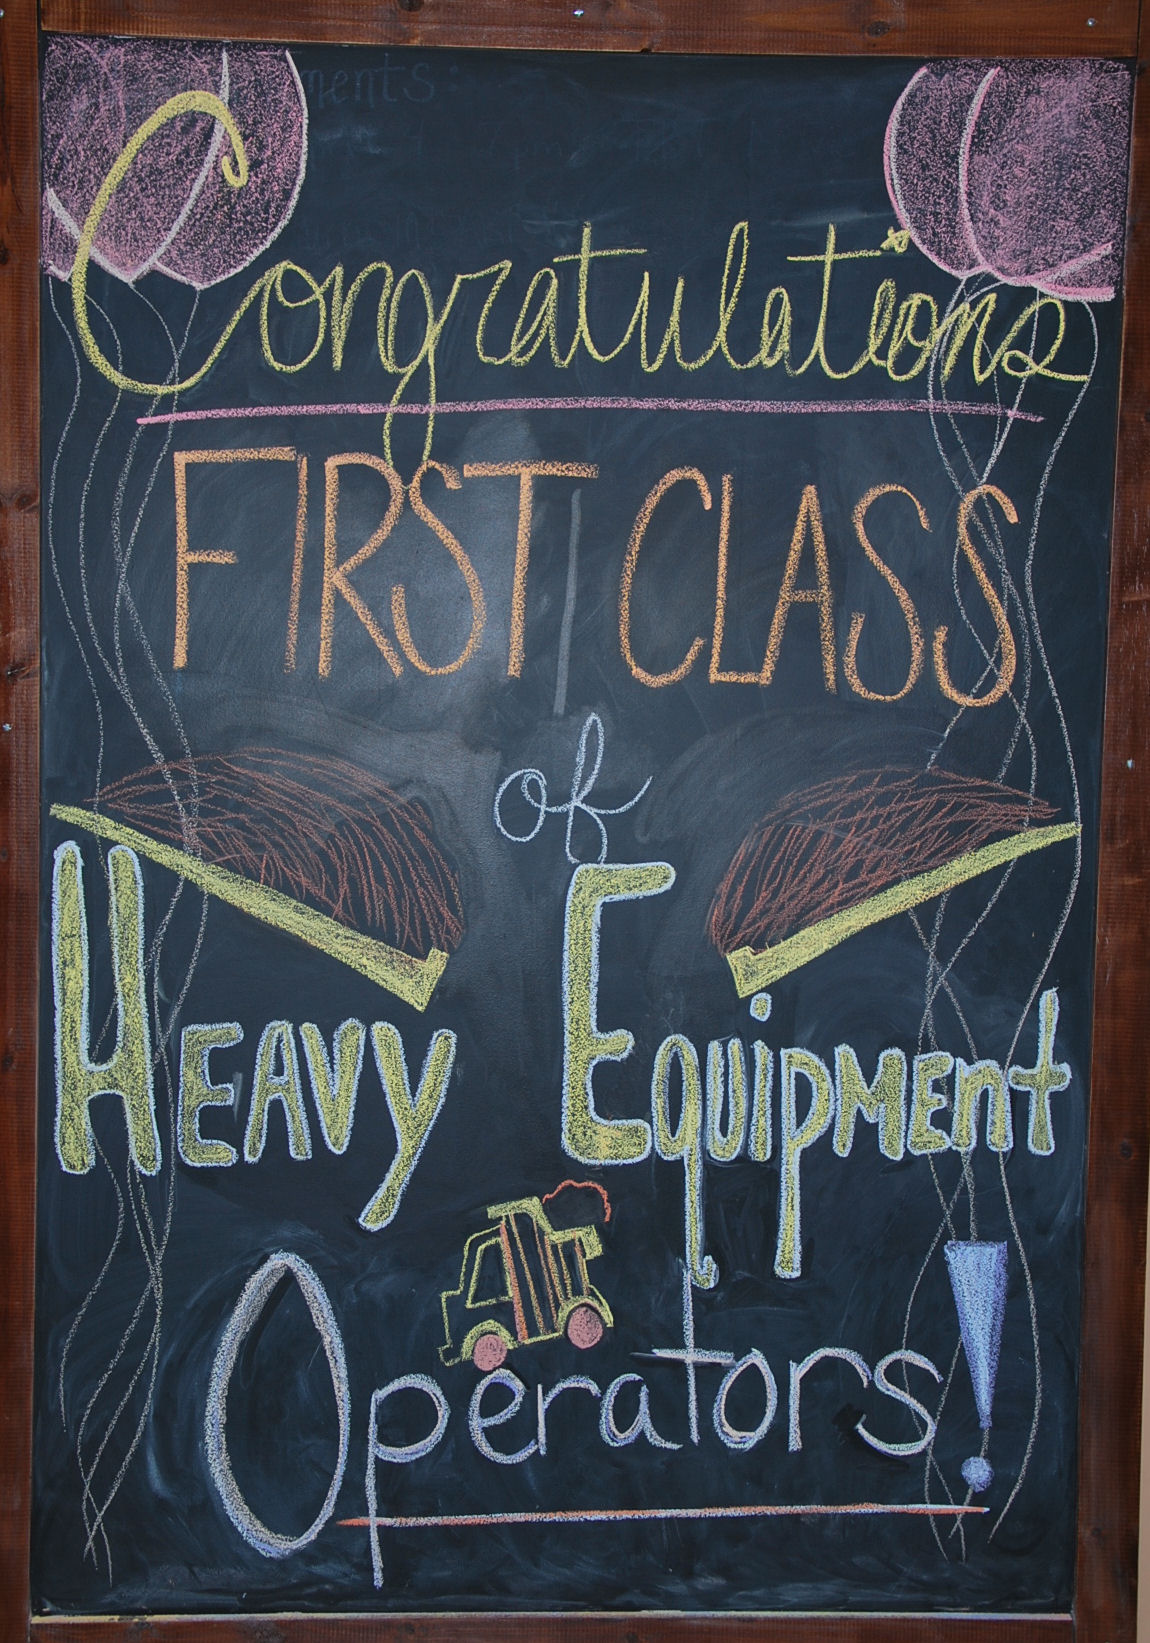 Congratulations
FIRST CLASS
of
HEAVY EQUIPMENT
Operators!